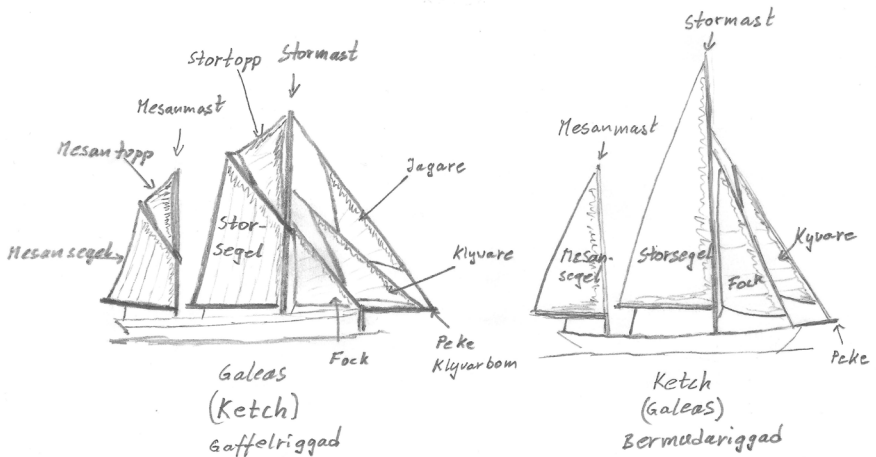 Stortopp
Stormast
Mesanmast
Mesantopp
Jagare
Stor-
segel
Mesansegel
Klyvare
Fock
Peke
Klyvarbom
Galeas
(Ketch)
Gaffelriggad
Stormast
Mesanmast
Mesan-
segel
Storsegel
Kyvare
Fock
Peke
Ketch
(Galeas)
Bermudariggad